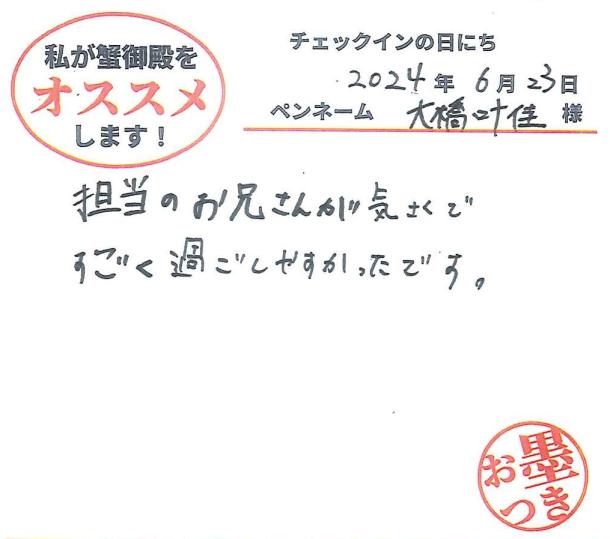 私が蟹御殿を
オススメ
します！
チェックインの日にち
2024年 6月23日
ペンネーム 大橋叶佳 様
担当のお兄さんが気さくで
すごく過ごしやすかったです。
お墨
つき